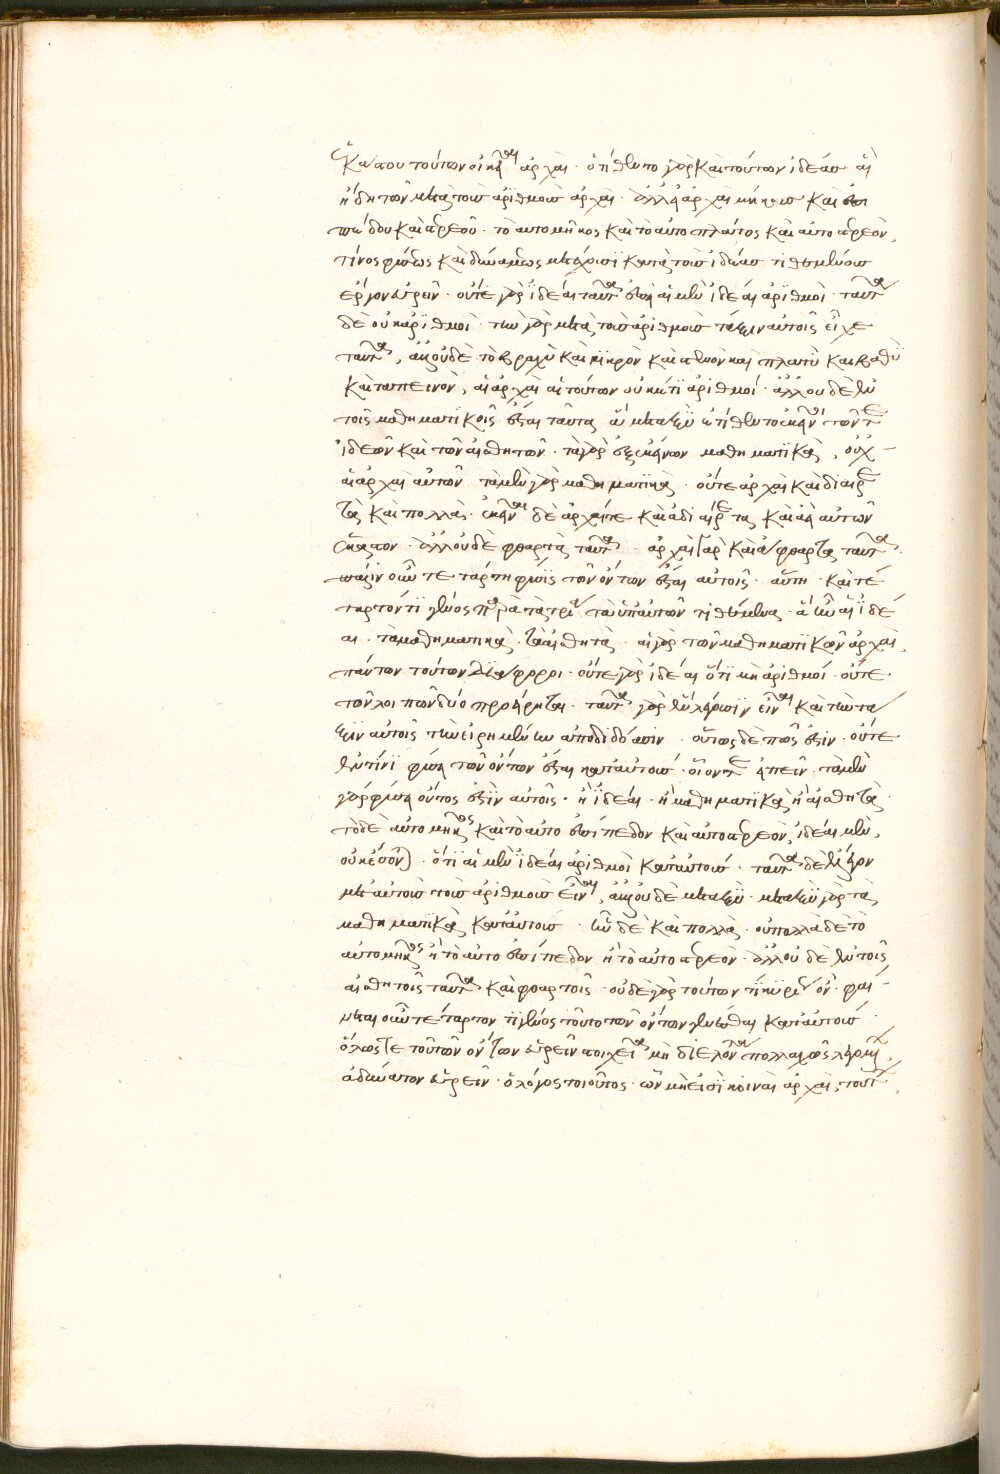 ἑκάστου τούτων οἰκεῖαι ἀρχαί · ἐτίθεντο γὰρ καὶ τούτων ἰδέας αἳ
ἤδη τῶν μετὰ τοὺς ἀριθμοὺς ἀρχαί · ἀλλ᾽ αἱ ἀρχαὶ μήκους καὶ ἐπι
πέδου καὶ στερεοῦ · τὸ αὐτομῆκος καὶ τὸ αὐτοπλάτος καὶ αὐτοστερεόν,
τίνος φύσεως καὶ δυνάμεως μετέχουσι κατὰ τοὺς ἰδέας τιθεμένους
ἔργον εὑρεῖν · οὔτε γὰρ ἰδέαι ταῦτα εἴπερ αἱ μὲν ἰδέαι ἀριθμοί · ταῦτα
δὲ οὐκ ἀριθμοί · τὴν γὰρ μετὰ τοὺς ἀριθμοὺς τάξιν αὐτοῖς εἶχε
ταῦτα, ἀλλ᾽ οὐδὲ τὸ βραχὺ καὶ μικρὸν καὶ στενὸν καὶ πλατὺ καὶ βαθὺ
καὶ ταπεινὸν, αἱ ἀρχαὶ αἱ τούτων οὐκέτι ἀριθμοί · ἀλλ᾽ οὐδὲ ἐν
τοῖς μαθηματικοῖς ἔσται ταῦτα ἃ μεταξὺ ἐτίθεντο ἐκεῖνοι τῶν τε
ἰδεῶν καὶ τῶν αἰσθητῶν · τὰ γὰρ ἐξ ἐκείνων μαθηματικὰ, οὐχ
αἱ ἀρχαὶ αὐτῶν τὰ μὲν γὰρ μαθηματικὰ · οὔτε ἀρχαὶ καὶ διαιρε
τὰ καὶ πολλά · ἐκεῖναι δὲ ἀρχαί τε καὶ ἀδιαίρετα καὶ ἓν αὐτῶν
ἕκαστον · ἀλλ᾽ οὐδὲ φθαρτὰ ταῦτα · ἀρχαὶ γὰρ καὶ ἄφθαρτα ταῦτα
πάλιν οὖν τετάρτη φύσις τῶν ὄντων ἔσται αὐτοῖς · αὕτη · καὶ τέ
ταρτόν τι γένος παρὰ τὰ τρία τὰ ὑπ᾽ αὐτῶν τιθέμενα · ἃ ἦν αἱ ἰδέ
αι · τὰ μαθηματικά · τὰ αἰσθητά · αἱ γὰρ τῶν μαθηματικῶν ἀρχαὶ,
πάντων τούτων διάφοροι · οὔτε γὰρ ἰδέαι ὅτι μὴ ἀριθμοί · οὔτε
τῶν λοιπῶν δύο προείρηται · ταῦτα γὰρ ἔλεγον εἶναι καὶ τὴν τά
ξιν αὐτοῖς τὴν εἰρημένην ἀποδιδόασιν · οὕτως δέ πως ἐστίν · οὔτε
ἐν τίνι φύσει τῶν ὄντων ἔσται κατ᾽ αὐτούς · οἷόν τε εἰπεῖν · τὰ μὲν
γὰρ φύσει ὄντος ἐστὶν αὐτοῖς · ἢ ἰδέαι · ἢ μαθηματικὰ ἢ αἰσθητὰ ·
τὸ δὲ αὐτομῆκος καὶ τὸ αὐτοεπίπεδον καὶ αὐτοστερεὸν, ἰδέαι μὲν,
οὐκ ἔσονται · ὅτι αἱ μὲν ἰδέαι ἀριθμοὶ κατ᾽ αὐτούς · ταῦτα δὲ ἔλεγον
μετ᾽ αὐτοὺς τοὺς ἀριθμοὺς εἶναι, ἀλλ᾽ οὐδὲ μεταξύ · μεταξὺ γὰρ τὰ
μαθηματικὰ κατ᾽ αὐτούς · ἦν δὲ καὶ πολλά · οὐ πολλὰ δὲ τὸ
αὐτομῆκος ἢ τὸ αὐτοεπίπεδον ἢ τὸ αὐτοστερεόν · ἀλλ᾽ οὐδὲ ἐν τοῖς
αἰσθητοῖς ταῦτα καὶ φθαρτοῖς · οὐδὲ γὰρ τούτων τι κύριον · φαί
νεται οὖν τέταρτόν τι γένος τοῦτο τῶν ὄντων γενέσθαι κατ᾽ αὐτούς ·
ὅλως τε τούτων ὄντων εὑρεῖν στοιχεῖα μὴ διελόντα πολλαχῶς λεγομένων,
ἀδύνατον εὑρεῖν · ὁ λόγος τοιοῦτος · ὧν μή εἰσι κοιναὶ ἀρχαὶ, τούτων